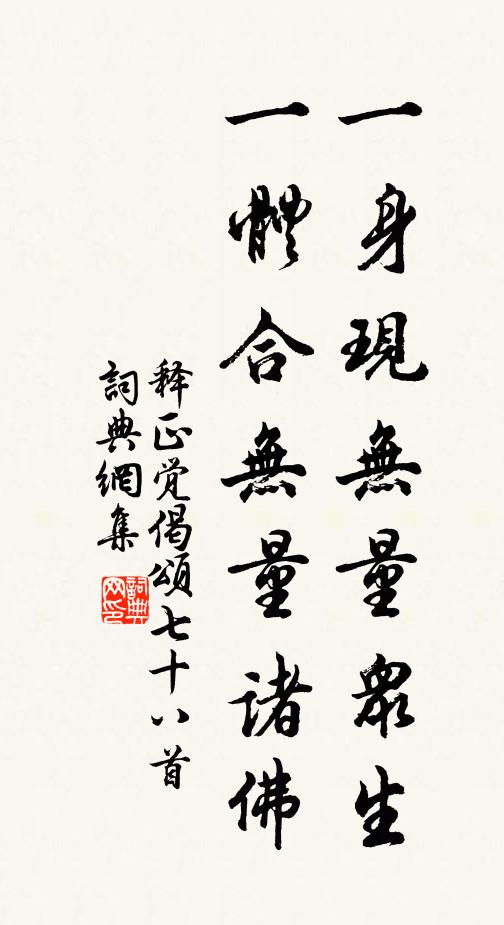 一身現無量眾生
一體合無量諸佛
释正觉偈頌七十八首
詞典網集
詞典網印